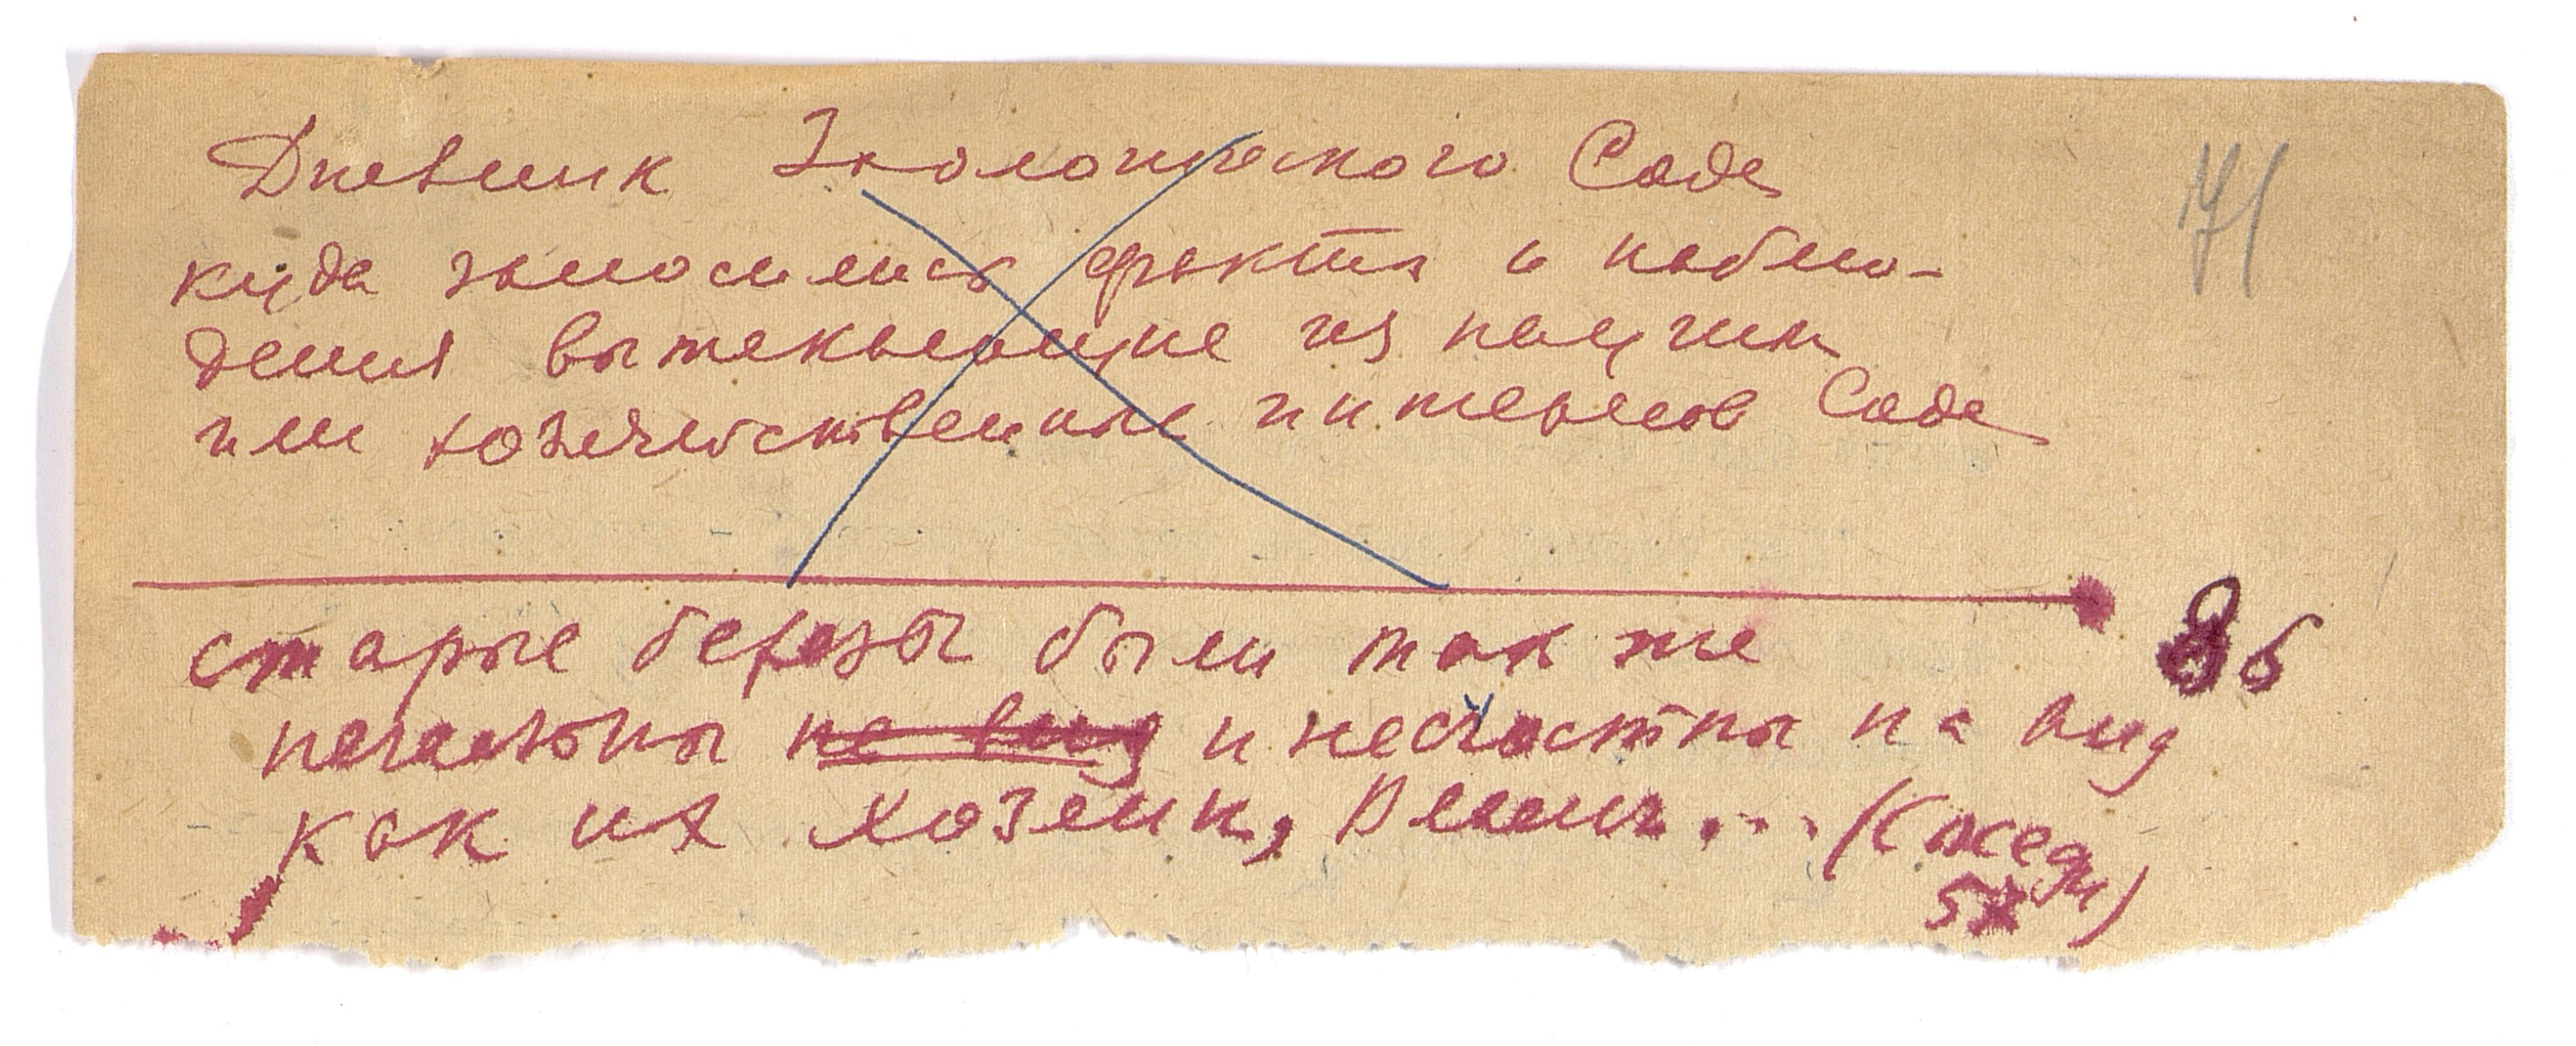 Дневник Экологического Сада
71
куда заносились факты и наблю-
дения вытекающие из научн
или хозяйственных интересов Сада
старые березы были так же
86
печальны на вид и несчастны на вид
как их хозяин, ... (